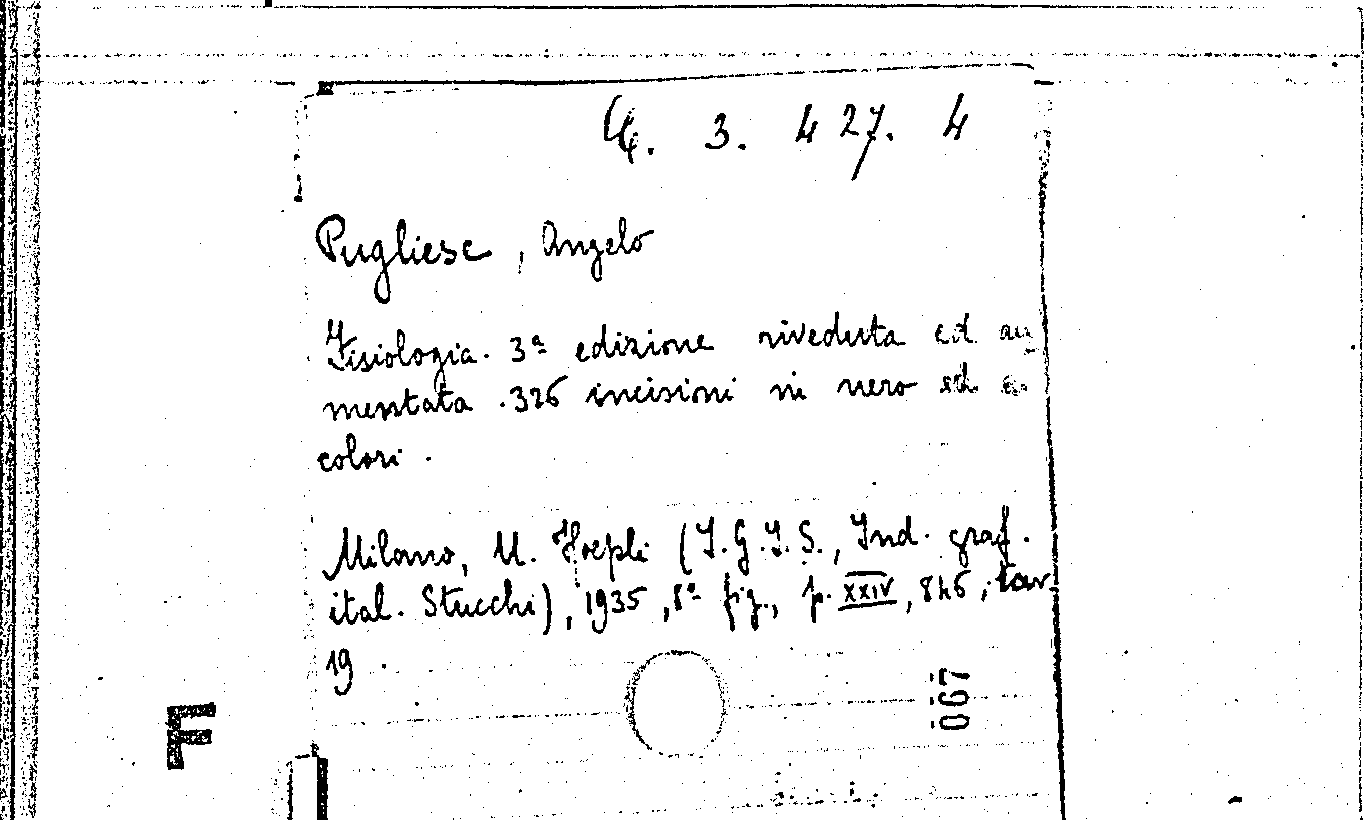 4. 3. 427. 4
Pugliese, Angelo
Fisiologia. 3ª edizione riveduta ed au
mentata. 326 incisioni in nero ed a
colori.
Milano, U. Hoepli (I.G.I.S., Ind. graf.
ital. Stucchi), 1935, 8º fig., p. XXIV, 846, tav.
19.
067
F